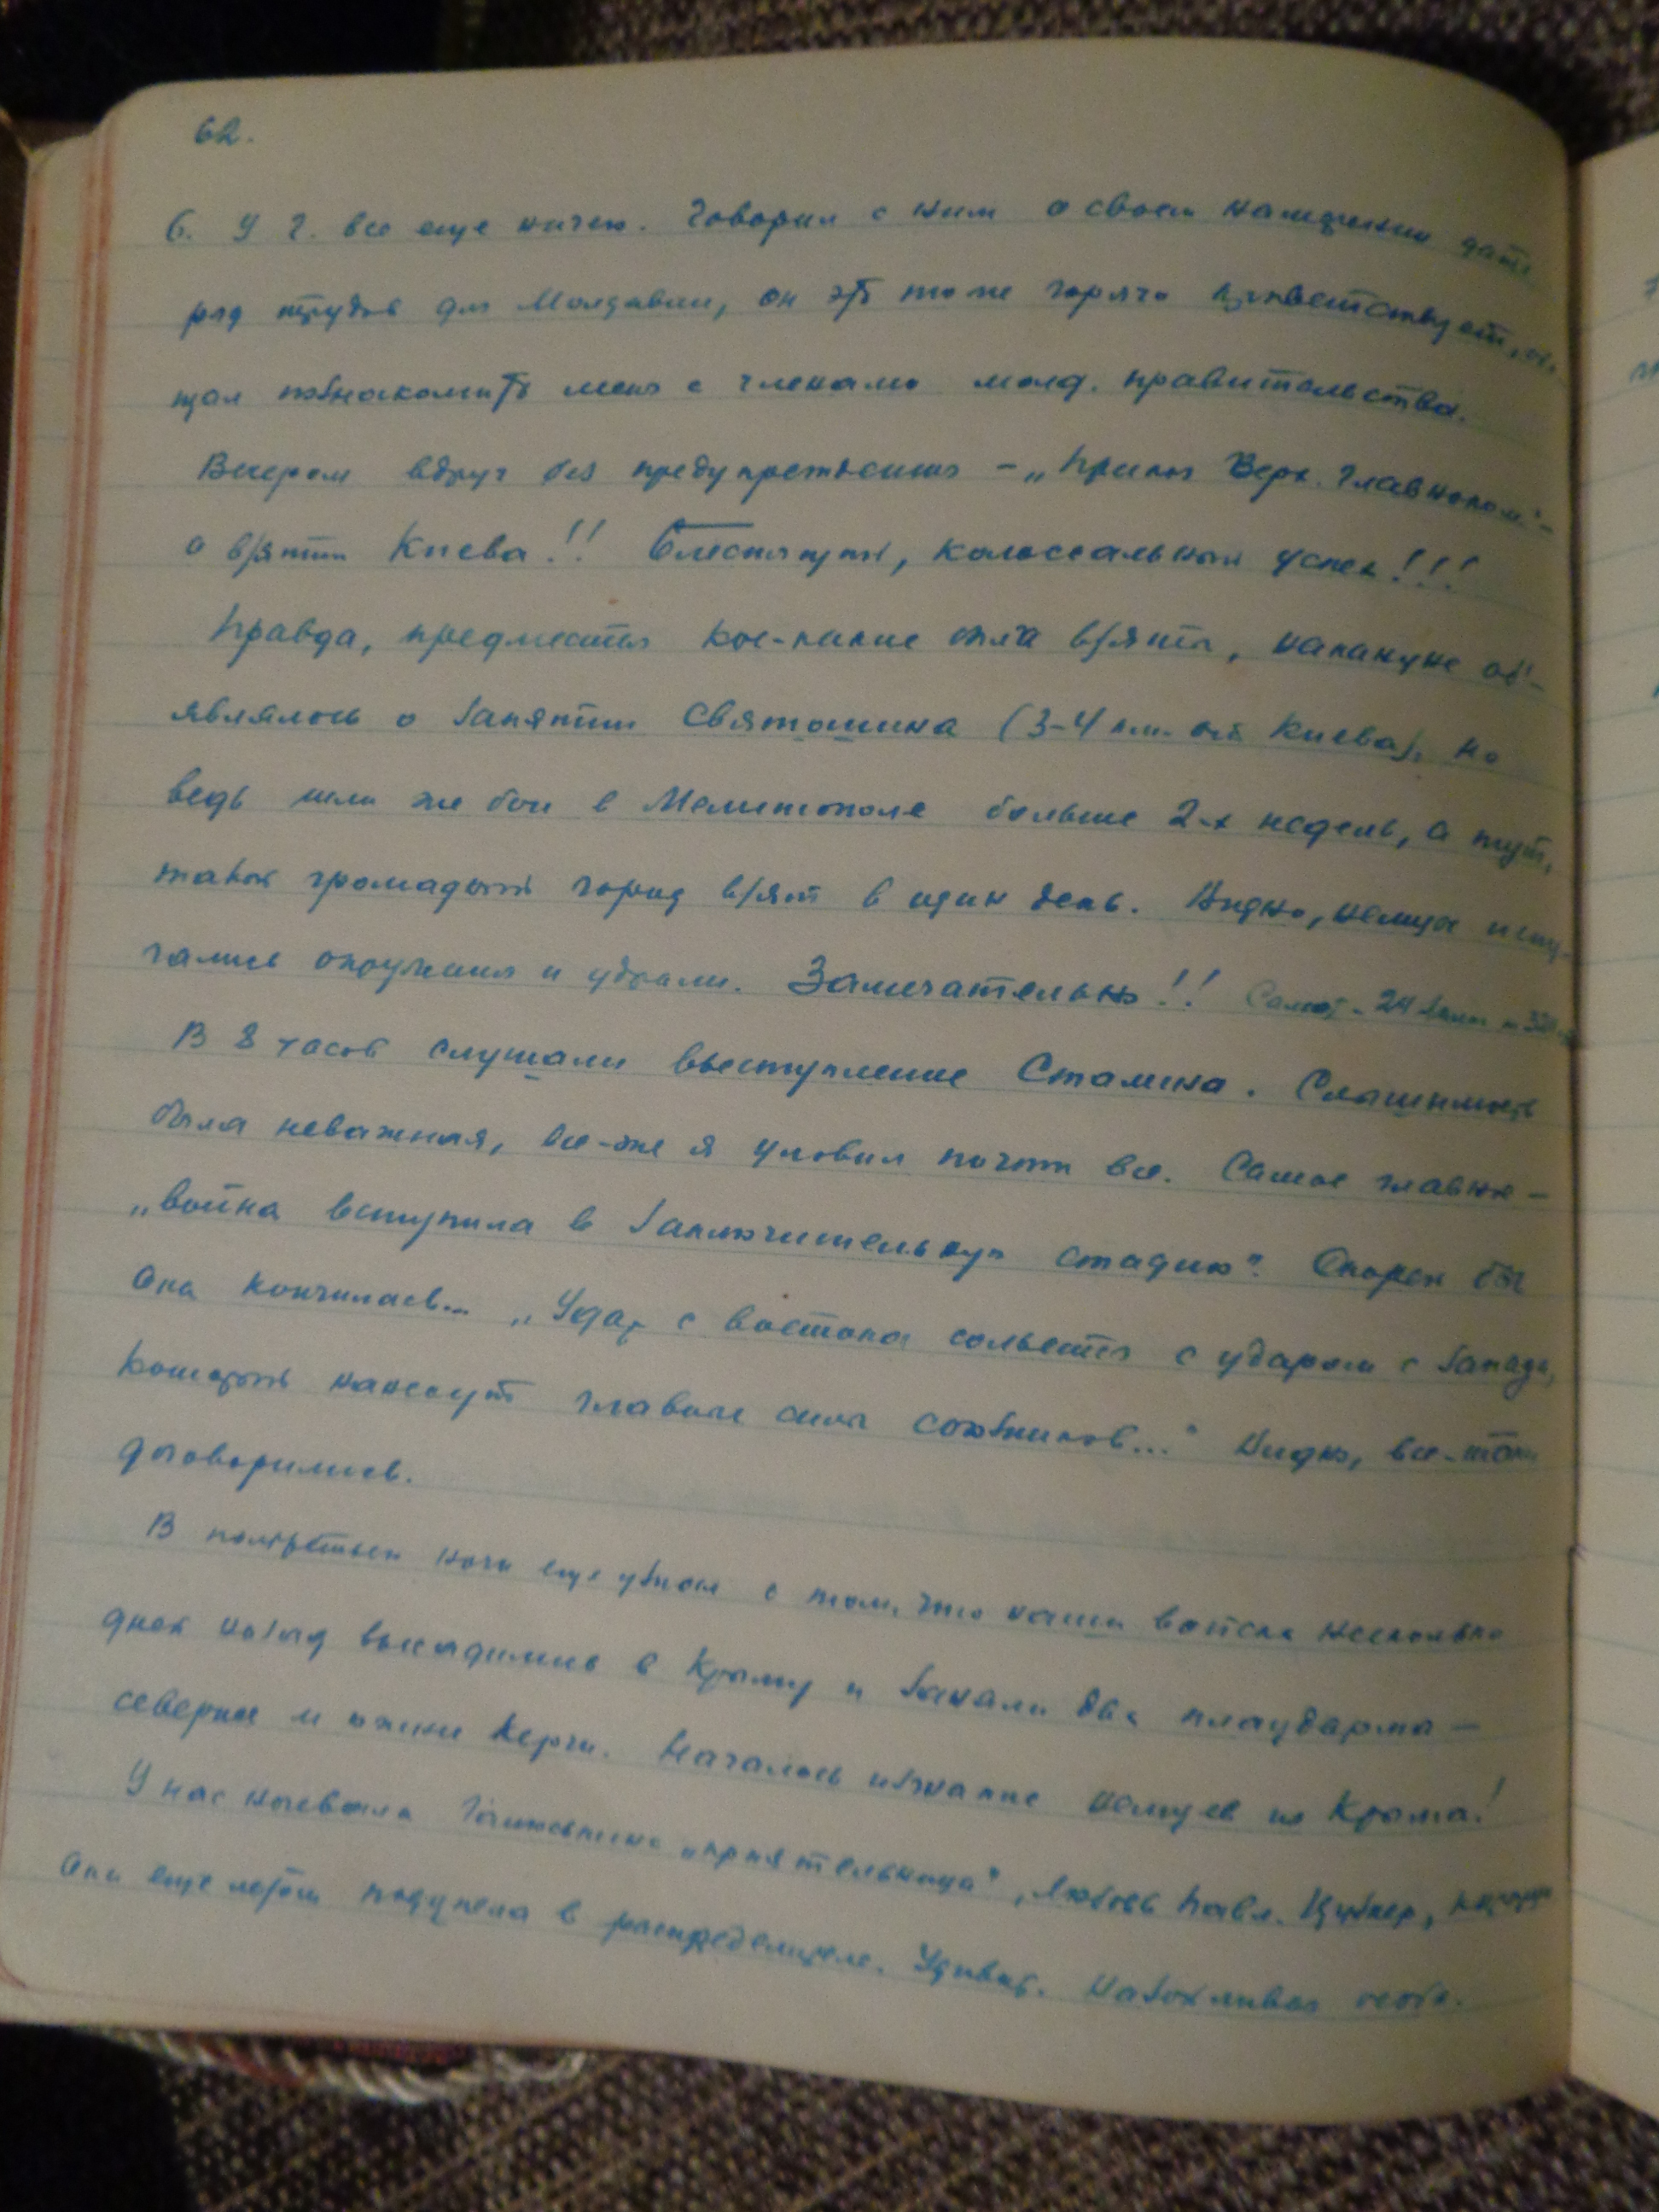 62.
6. У Г. все еще ничего. Говорил с ним о своем намерении дать
ряд трудов для Молдавии, он это тоже горячо приветствует,
щал познакомить меня с членами молд. правительства.
Вечером вдруг без предупреждения – „Приказ Верх. Главноком." –
о взятии Киева!! Блестящий, колоссальный успех!!!
Правда, предместья кое-какие взяты, накануне об'-
являлось о занятии Святошина (3-4 км. от Киева), но
ведь шли же бои в Мелитополе больше 2-х недель, а тут,
такой громадный город взят в один день. Видно, немцы испу-
гались окружения и удрали. Замечательно!! Салют – 24 залпа
В 8 часов слушали выступление Сталина. Слышимость
была неважная, все-же я уловил почти все. Самое главное –
„война вступила в заключительную стадию". Скорей бы
она кончилась... „Удар с востока сольется с ударом с запада,
который нанесут главные силы союзников..." Видно, все-таки
договорились.
В ночи еще узнал о том, что наши войска несколько
дней назад высадились в Крыму и заняли два плацдарма –
севернее и южнее Керчи. Началось изгнание немцев из Крыма!
У нас ночевала „приятельница", Любовь Павл.
она еще летом в распределителе. Удивит. находчивая особа.